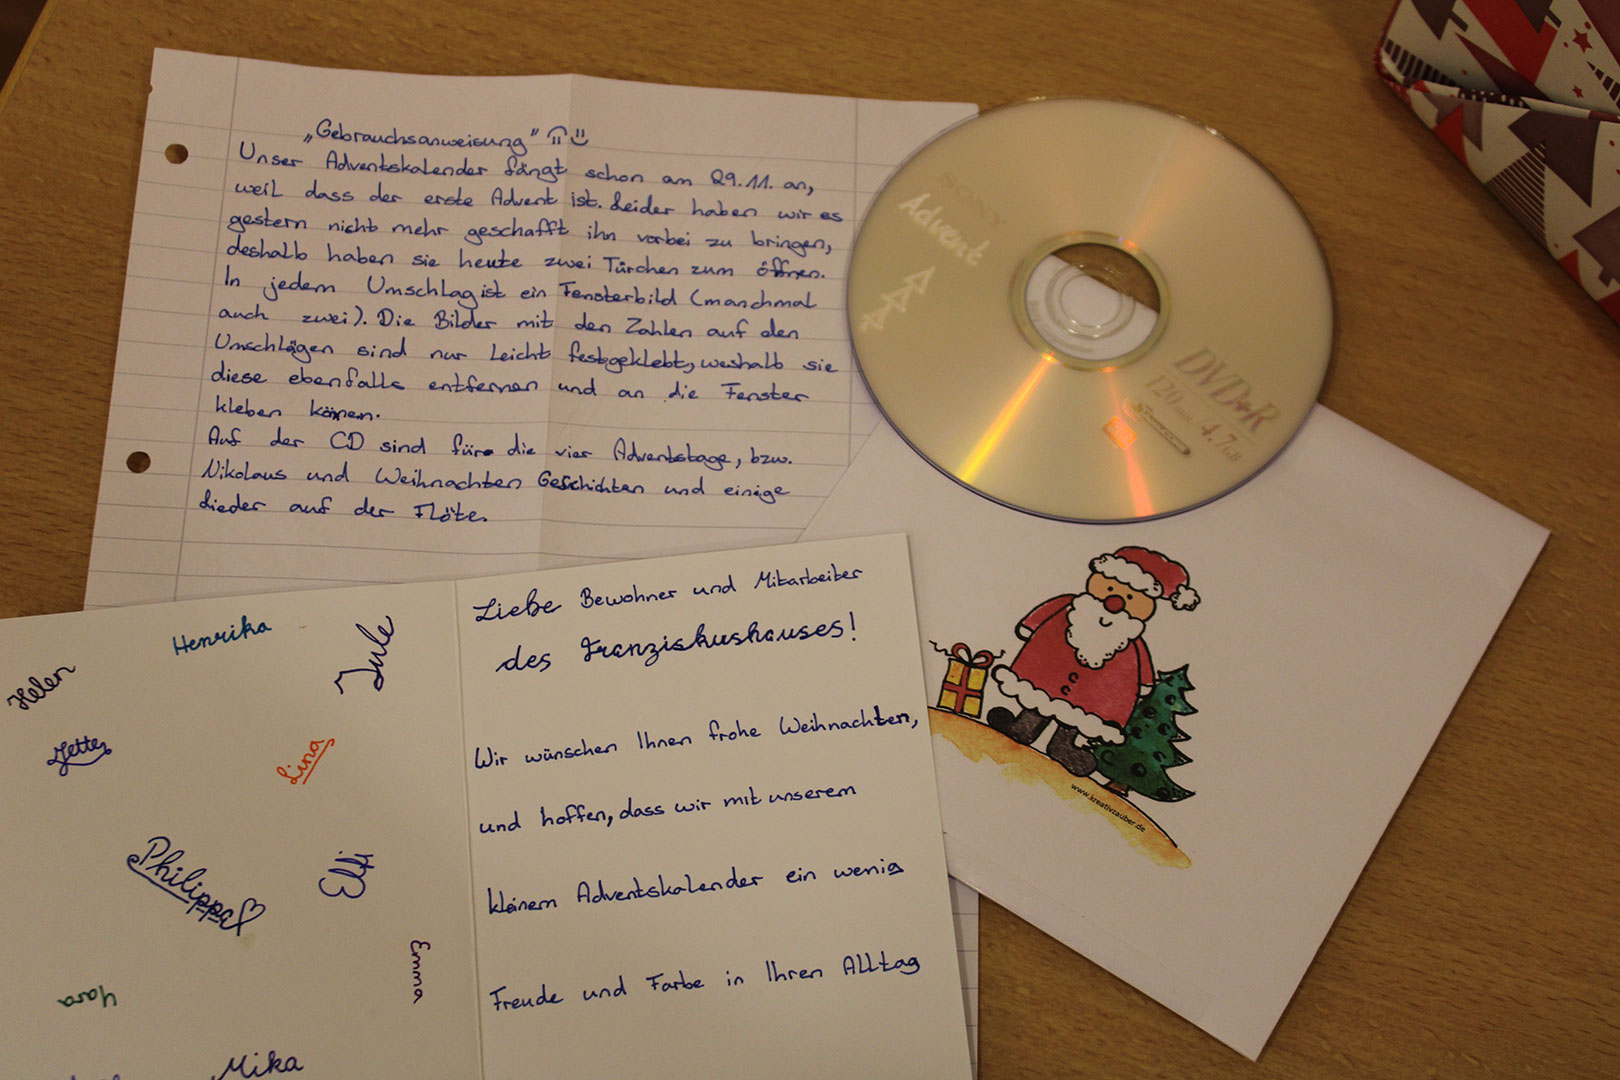 „Gebrauchsanweisung"
Unser Adventskalender fängt schon am 29.11. an,
weil dass der erste Advent ist. Leider haben wir es
gestern nicht mehr geschafft ihn vorbei zu bringen,
deshalb haben sie heute zwei Türchen zum öffnen.
In jedem Umschlag ist ein Fensterbild (manchmal
auch zwei). Die Bilder mit den Zahlen auf den
Umschlägen sind nur leicht festgeklebt, weshalb sie
diese ebenfalls entfernen und an die Fenster
kleben können.
Auf der CD sind für die vier Adventstage, bzw.
Nikolaus und Weihnachten Geschichten und einige
Lieder auf der Flöte.
Advent
DVD+R
120 min 4.7GB
Liebe Bewohner und Mitarbeiter
des Franziskushauses!
Wir wünschen Ihnen frohe Weihnachten,
und hoffen, dass wir mit unserem
kleinem Adventskalender ein wenig
Freude und Farbe in Ihren Alltag
Henrika
Jule
Helen
Jette
Lina
Philippa
Elli
Emma
Yara
Mika
www.kreativzauber.de